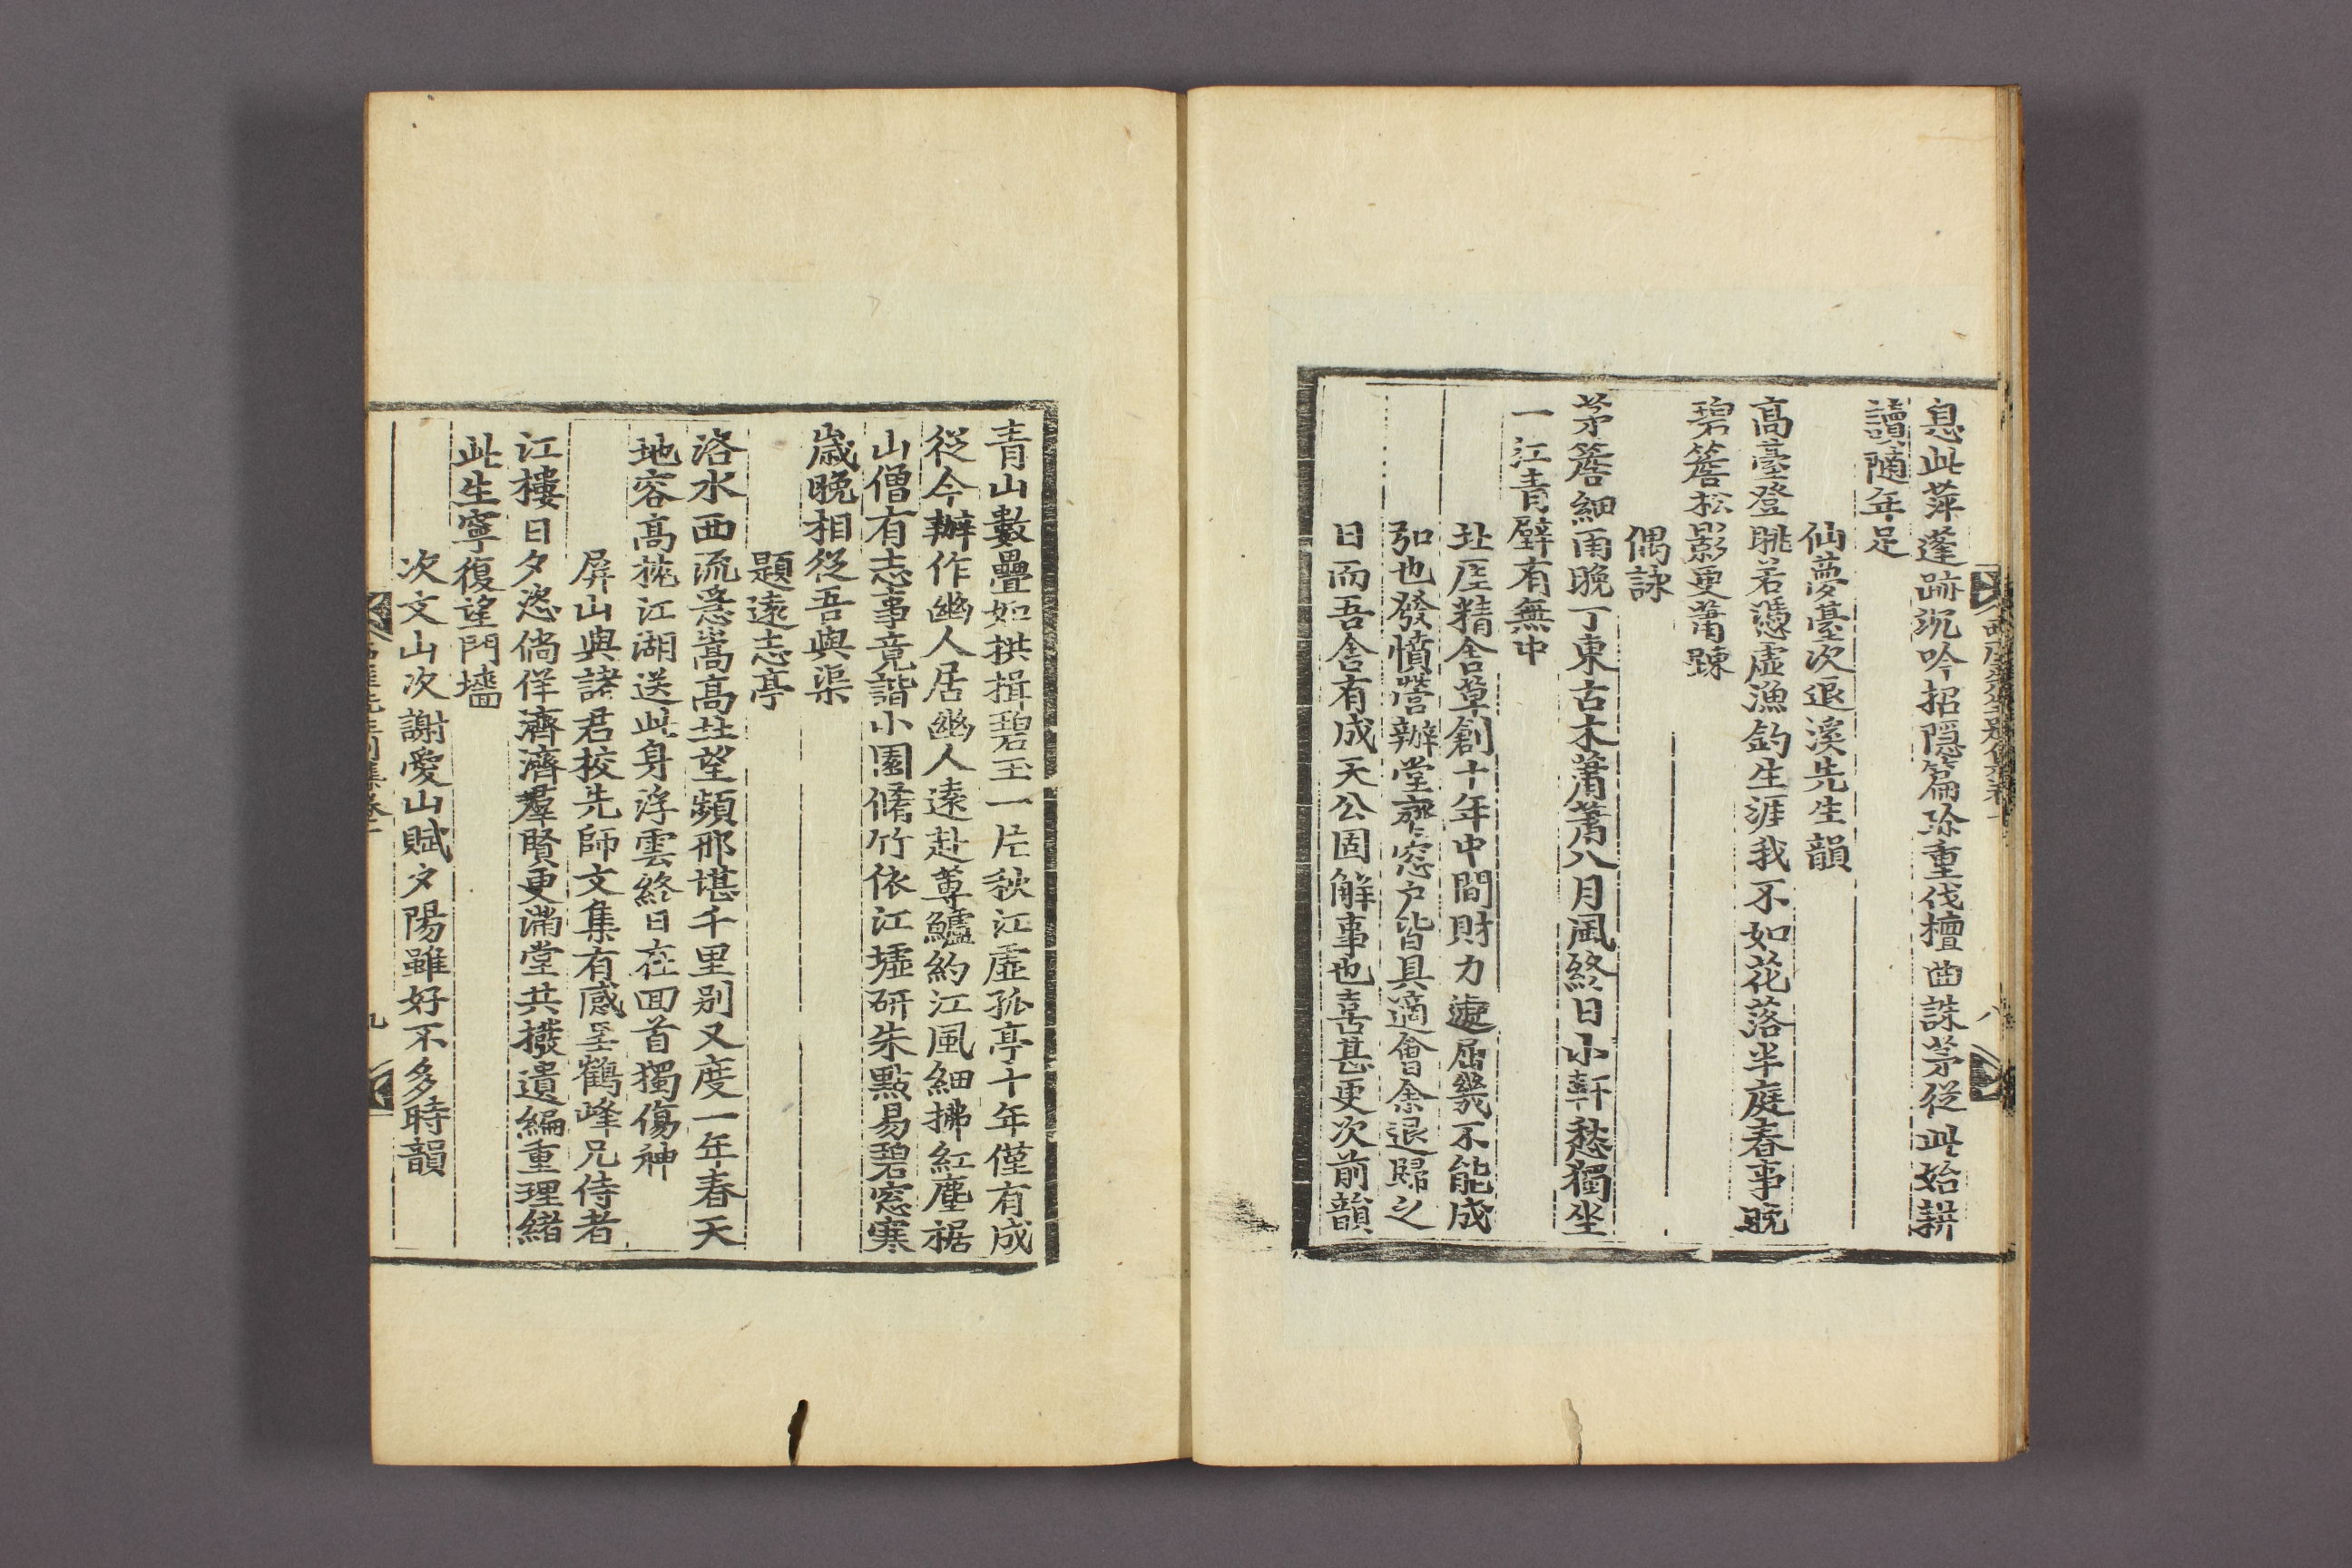 息此萍蓬跡沉吟招隱篇除重伐檀曲誅茅從此始耕
讀隨年足
仙夢臺次退溪先生韻
高臺登眺若憑虛漁釣生涯我不如花落半庭春事晚
碧簷松影更蕭踈
偶詠
茅簷細雨晚丁東古木蕭蕭八月風終日小軒愁獨坐
一江青壁有無中
北厓精舍草創十年中間財力遽屈幾不能成
弘也發憤營辦堂寮窓戶皆具適會余退歸之
日而吾舍有成天公固解事也喜甚更次前韻
青山數疊如拱揖碧玉一片秋江虛孤亭十年僅有成
從今辦作幽人居幽人遠赴蓴鱸約江風細拂紅塵裾
山僧有志事竟諧小園脩竹依江墟研朱點易碧窓寒
歲晚相從吾與渠
題遠志亭
洛水西流急嵩高北望頻那堪千里別又度一年春天
地容高枕江湖送此身浮雲終日在回首獨傷神
屏山與諸君校先師文集有感呈鶴峰兄侍者
江樓日夕恣倘佯濟濟羣賢更滿堂共撥遺編重理緖
此生寧復望門墻
次文山次謝愛山賦夕陽雖好不多時韻
九